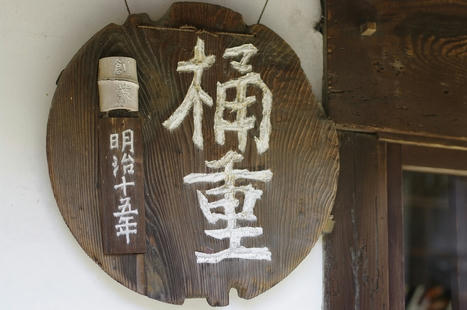 桶重
創業
明治十五年